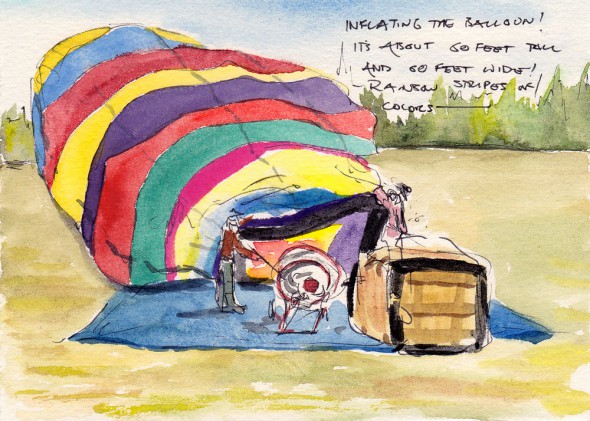 INFLATING THE BALLOON!
IT'S ABOUT 60 FEET TALL
AND 60 FEET WIDE!
- RAINBOW STRIPES OF/
COLORS